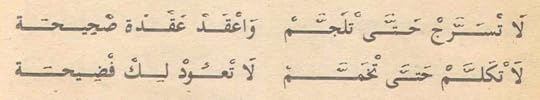 لَا تْسَرَّجْ حَتَّى تْلَجَّمْ وَاعْقَدْ عَقْدَة صْحِيحَة
لَا تْكَلَّمْ حَتَّى تْخَمَّمْ لَا تْعُودْ لِكْ فْضِيحَة